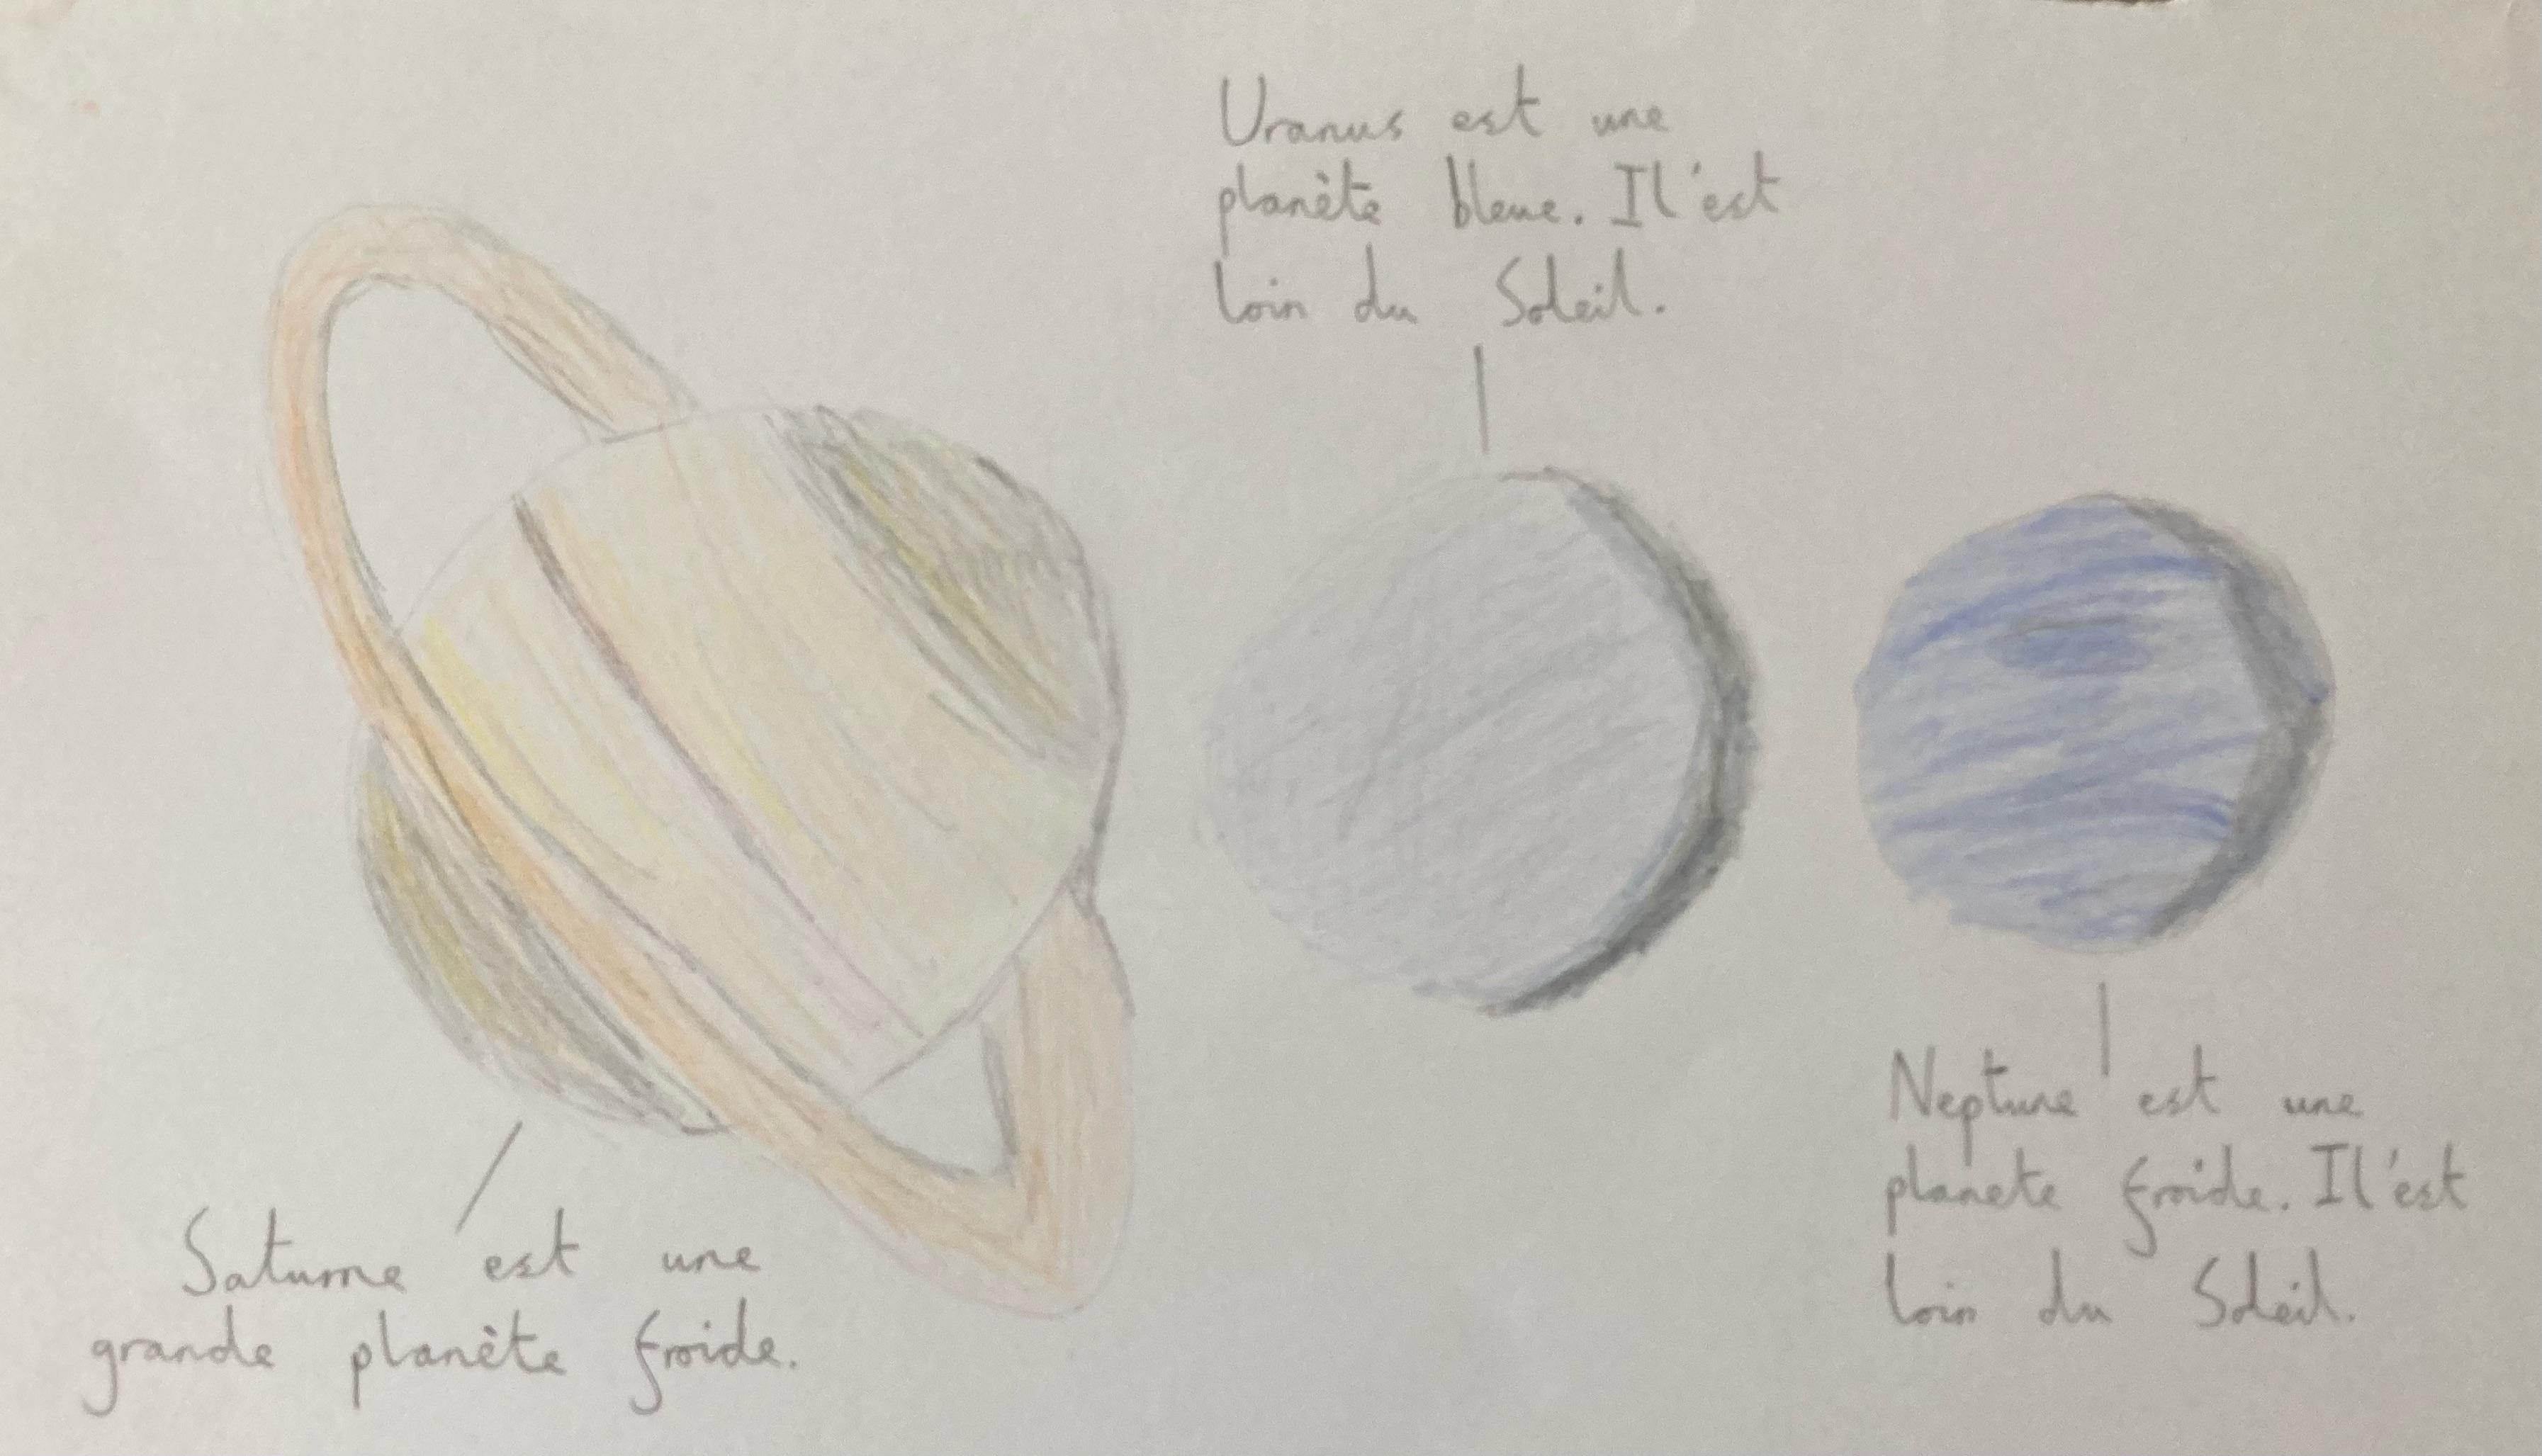 Uranus est une
planète bleue. Il'est
loin du Soleil.
Saturne est une
grande planète froide.
Neptune est une
planete froide. Il'est
loin du Soleil.